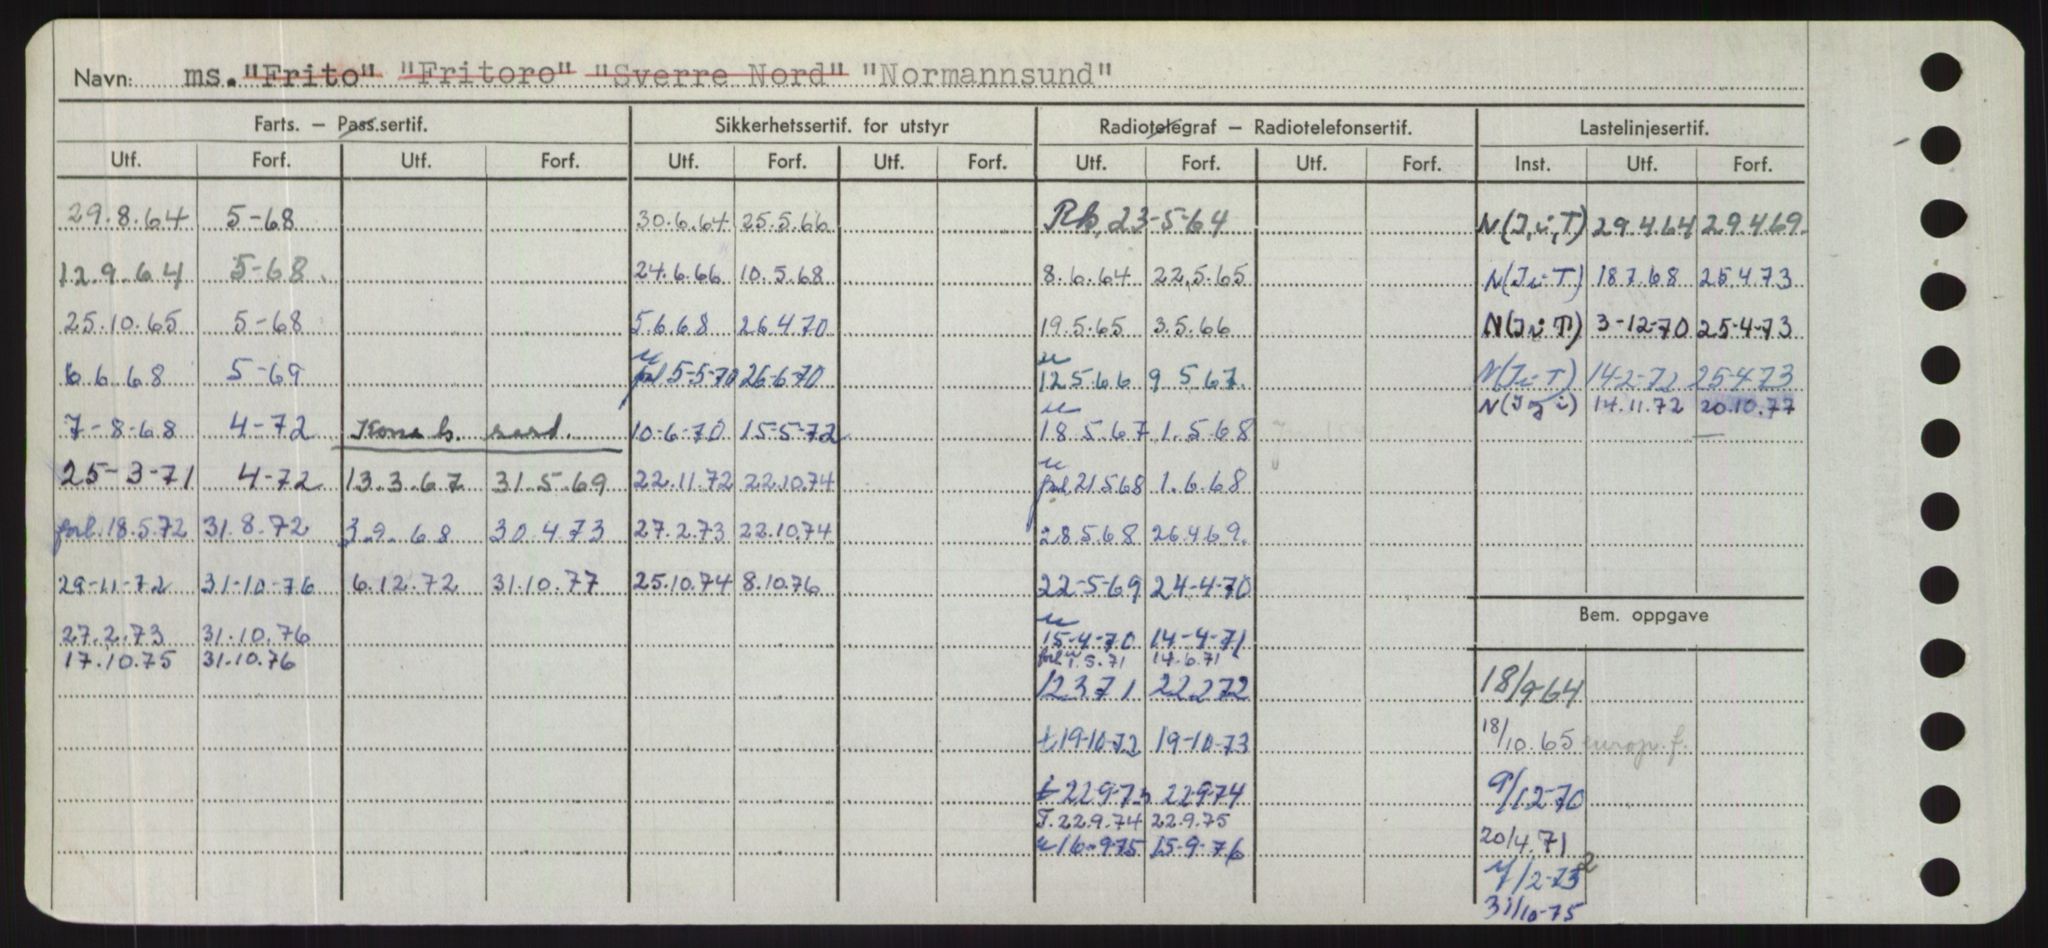 Navn: ms. "Frito" "Fritoro" "Sverre Nord" "Normannsund"
Farts. – Pass.sertif. Sikkerhetssertif. for utstyr Radiotelegraf – Radiotelefonsertif. Lastelinjesertif.
Utf. Forf. Utf. Forf. Utf. Forf. Utf. Forf. Utf. Forf. Utf. Forf. Inst. Utf. Forf.
29.8.64 5-68 30.6.64 25.5.66 Rk. 23-5-64 N(J,i,T) 29.4.64 29.4.69.
12.9.64 5-68. 24.6.66 10.5.68 8.6.64 22.5.65 N(J i T) 18.7.68 25.4.73
25.10.65 5-68 5.6.68 26.4.70 19.5.65 3.5.66 N(J i T) 3-12-70 25-4-73
6.6.68 5-69 forl 5-5-70 26-6-70 u 12.5.66 9.5.67. N(J i T) 14-2-72 25.4.73
N(J i) 14.11.72 20.10.77
7-8-68 4-72 10-6-70 15-5-72 u 18.5.67 1.5.68
25-3-71 4-72 13.3.67 31.5.69 22.11.72 22.10.74 u forl. 21.5.68 1.6.68
forl. 18.5.72 31.8.72 3.9.68 30.4.73 27.2.73 22.10.74 28.5.68 26.4.69.
29-11-72 31-10-76 6.12.72 31.10.77 25.10.74 8.10.76 22-5-69 24-4-70
Bem. oppgave
27.2.73 31.10.76 u 15-4-70 14-4-71
17.10.75 31.10.76 forl u 1.5.71 14.6.71
12.3.71 22.2.72 18/9-64
t 19-10-72 19-10-73 18/10.65 europ. f.
t 22.9-73 22.9-74 9/12-70
T. 22.9.74 22.9.75 20/4.71
u 16-9-75 15-9-76
31/10-75